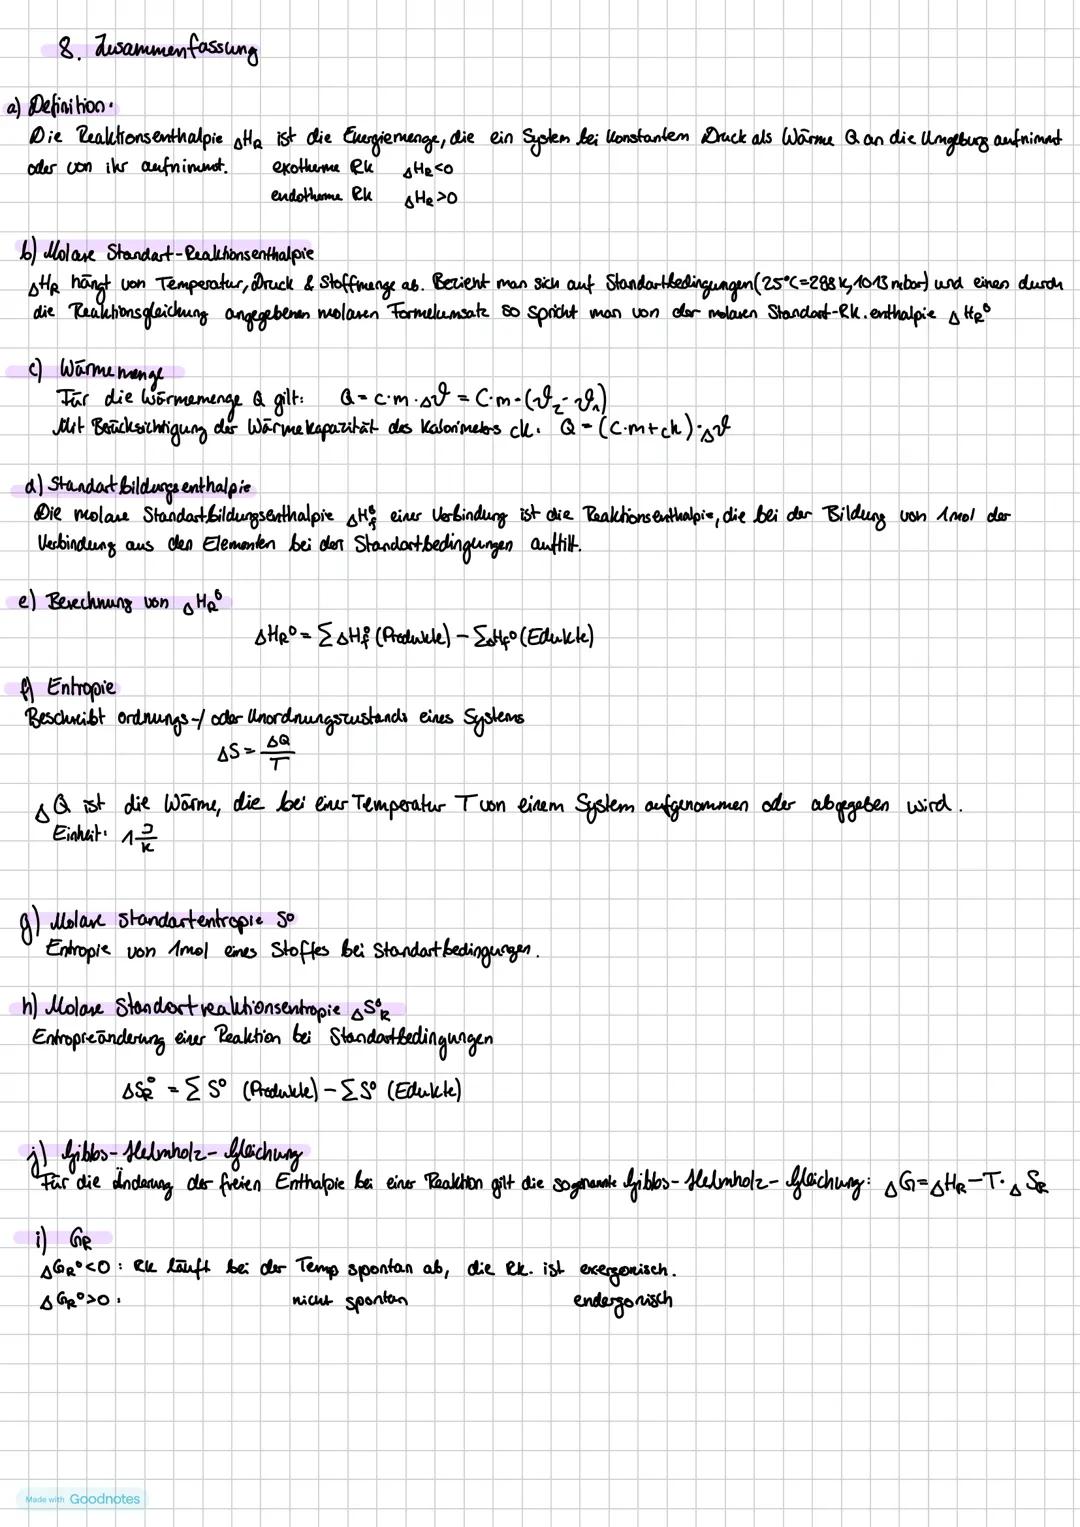 8. Zusammenfassung
a) Definition:
Die Reaktionsenthalpie ΔHR ist die Energiemenge, die ein System bei konstantem Druck als Wärme Q an die Umgebung aufnimmt
oder von ihr aufnimmt. exotherme Rk ΔHR<0
endotherme Rk ΔHR>0
b) Molare Standart-Reaktionsenthalpie
ΔHR hängt von Temperatur, Druck & Stoffmenge ab. Bezieht man sich auf Standartbedingungen (25°C=288K, 1013 mbar) und einen durch
die Reaktionsgleichung angegebenen molaren Formelumsatz so spricht man von der molaren Standart-Rk.enthalpie ΔHR°
c) Wärmemenge
Für die Wärmemenge Q gilt: Q = c·m·Δϑ = C·m·(ϑ₂-ϑ₁)
Mit Berücksichtigung der Wärmekapazität des Kalorimeters ck: Q = (C·m+ck)·Δϑ
d) Standartbildungsenthalpie
Die molare Standartbildungsenthalpie ΔHf° einer Verbindung ist die Reaktionsenthalpie, die bei der Bildung von 1mol der
Verbindung aus den Elementen bei den Standartbedingungen auftitt.
e) Berechnung von ΔHR°
ΔHR° = ∑ΔHf° (Produkte) - ∑ΔHf° (Edukte)
f) Entropie
Beschreibt ordnungs-/ oder Unordnungszustands eines Systems
ΔS = ΔQ/T
ΔQ ist die Wärme, die bei einer Temperatur T von einem System aufgenommen oder abgegeben wird.
Einheit: 1 J/K
g) Molare Standartentropie S°
Entropie von 1mol eines Stoffes bei Standartbedingungen.
h) Molare Standartreaktionsentropie ΔS°R
Entropieänderung einer Reaktion bei Standartbedingungen
ΔSR° = ∑ S° (Produkte) - ∑ S° (Edukte)
j) Gibbs-Helmholz-Gleichung
Für die Änderung der freien Enthalpie bei einer Reaktion gilt die sogenannte Gibbs-Helmholz-Gleichung: ΔG=ΔHR-T·ΔSR
i) GR
ΔGR°<0: Rk läuft bei der Temp spontan ab, die Rk. ist exergonisch.
ΔGR°>0: nicht spontan endergonisch
Made with Goodnotes